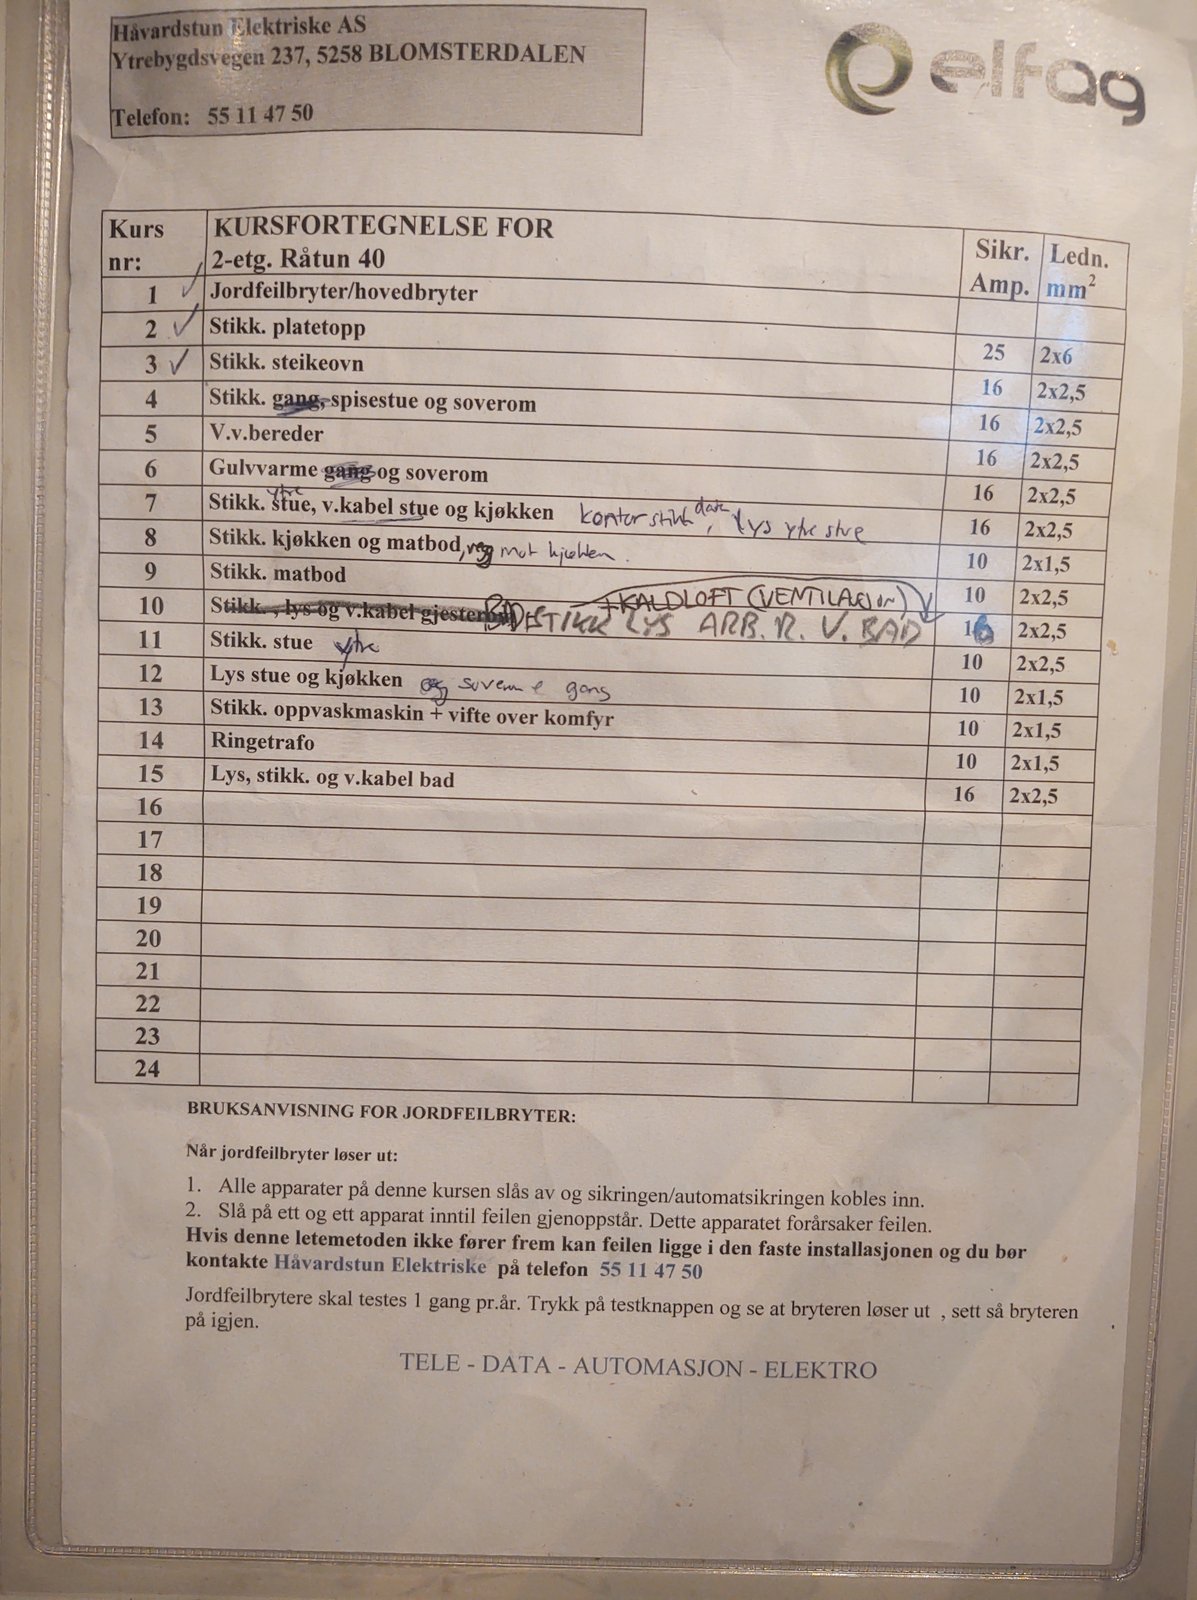 Håvardstun Elektriske AS
Ytrebygdsvegen 237, 5258 BLOMSTERDALEN
Telefon: 55 11 47 50
elfag
Kurs nr: KURSFORTEGNELSE FOR 2-etg. Råtun 40 Sikr. Amp. Ledn. mm²
1 ✓ Jordfeilbryter/hovedbryter
2 ✓ Stikk. platetopp 25 2x6
3 ✓ Stikk. steikeovn 16 2x2,5
4 Stikk. gang, spisestue og soverom 16 2x2,5
5 V.v.bereder 16 2x2,5
6 Gulvvarme gang og soverom 16 2x2,5
7 Stikk. ytre stue, v.kabel stue og kjøkken kontor stikk data, Lys ytre stue 16 2x2,5
8 Stikk. kjøkken og matbod, vegg mot kjøkken. 10 2x1,5
9 Stikk. matbod 10 2x2,5
+KALDLOFT (VENTILASJON)
10 Stikk. , lys og v.kabel gjesterom STIKK LYS ARB. R. V. BAD 16 2x2,5
11 Stikk. stue ytre 10 2x2,5
12 Lys stue og kjøkken og soverom e gang 10 2x1,5
13 Stikk. oppvaskmaskin + vifte over komfyr 10 2x1,5
14 Ringetrafo 10 2x1,5
15 Lys, stikk. og v.kabel bad 16 2x2,5
16
17
18
19
20
21
22
23
24
BRUKSANVISNING FOR JORDFEILBRYTER:
Når jordfeilbryter løser ut:
1. Alle apparater på denne kursen slås av og sikringen/automatsikringen kobles inn.
2. Slå på ett og ett apparat inntil feilen gjenoppstår. Dette apparatet forårsaker feilen.
Hvis denne letemetoden ikke fører frem kan feilen ligge i den faste installasjonen og du bør
kontakte Håvardstun Elektriske på telefon 55 11 47 50
Jordfeilbrytere skal testes 1 gang pr.år. Trykk på testknappen og se at bryteren løser ut , sett så bryteren
på igjen.
TELE - DATA - AUTOMASJON - ELEKTRO